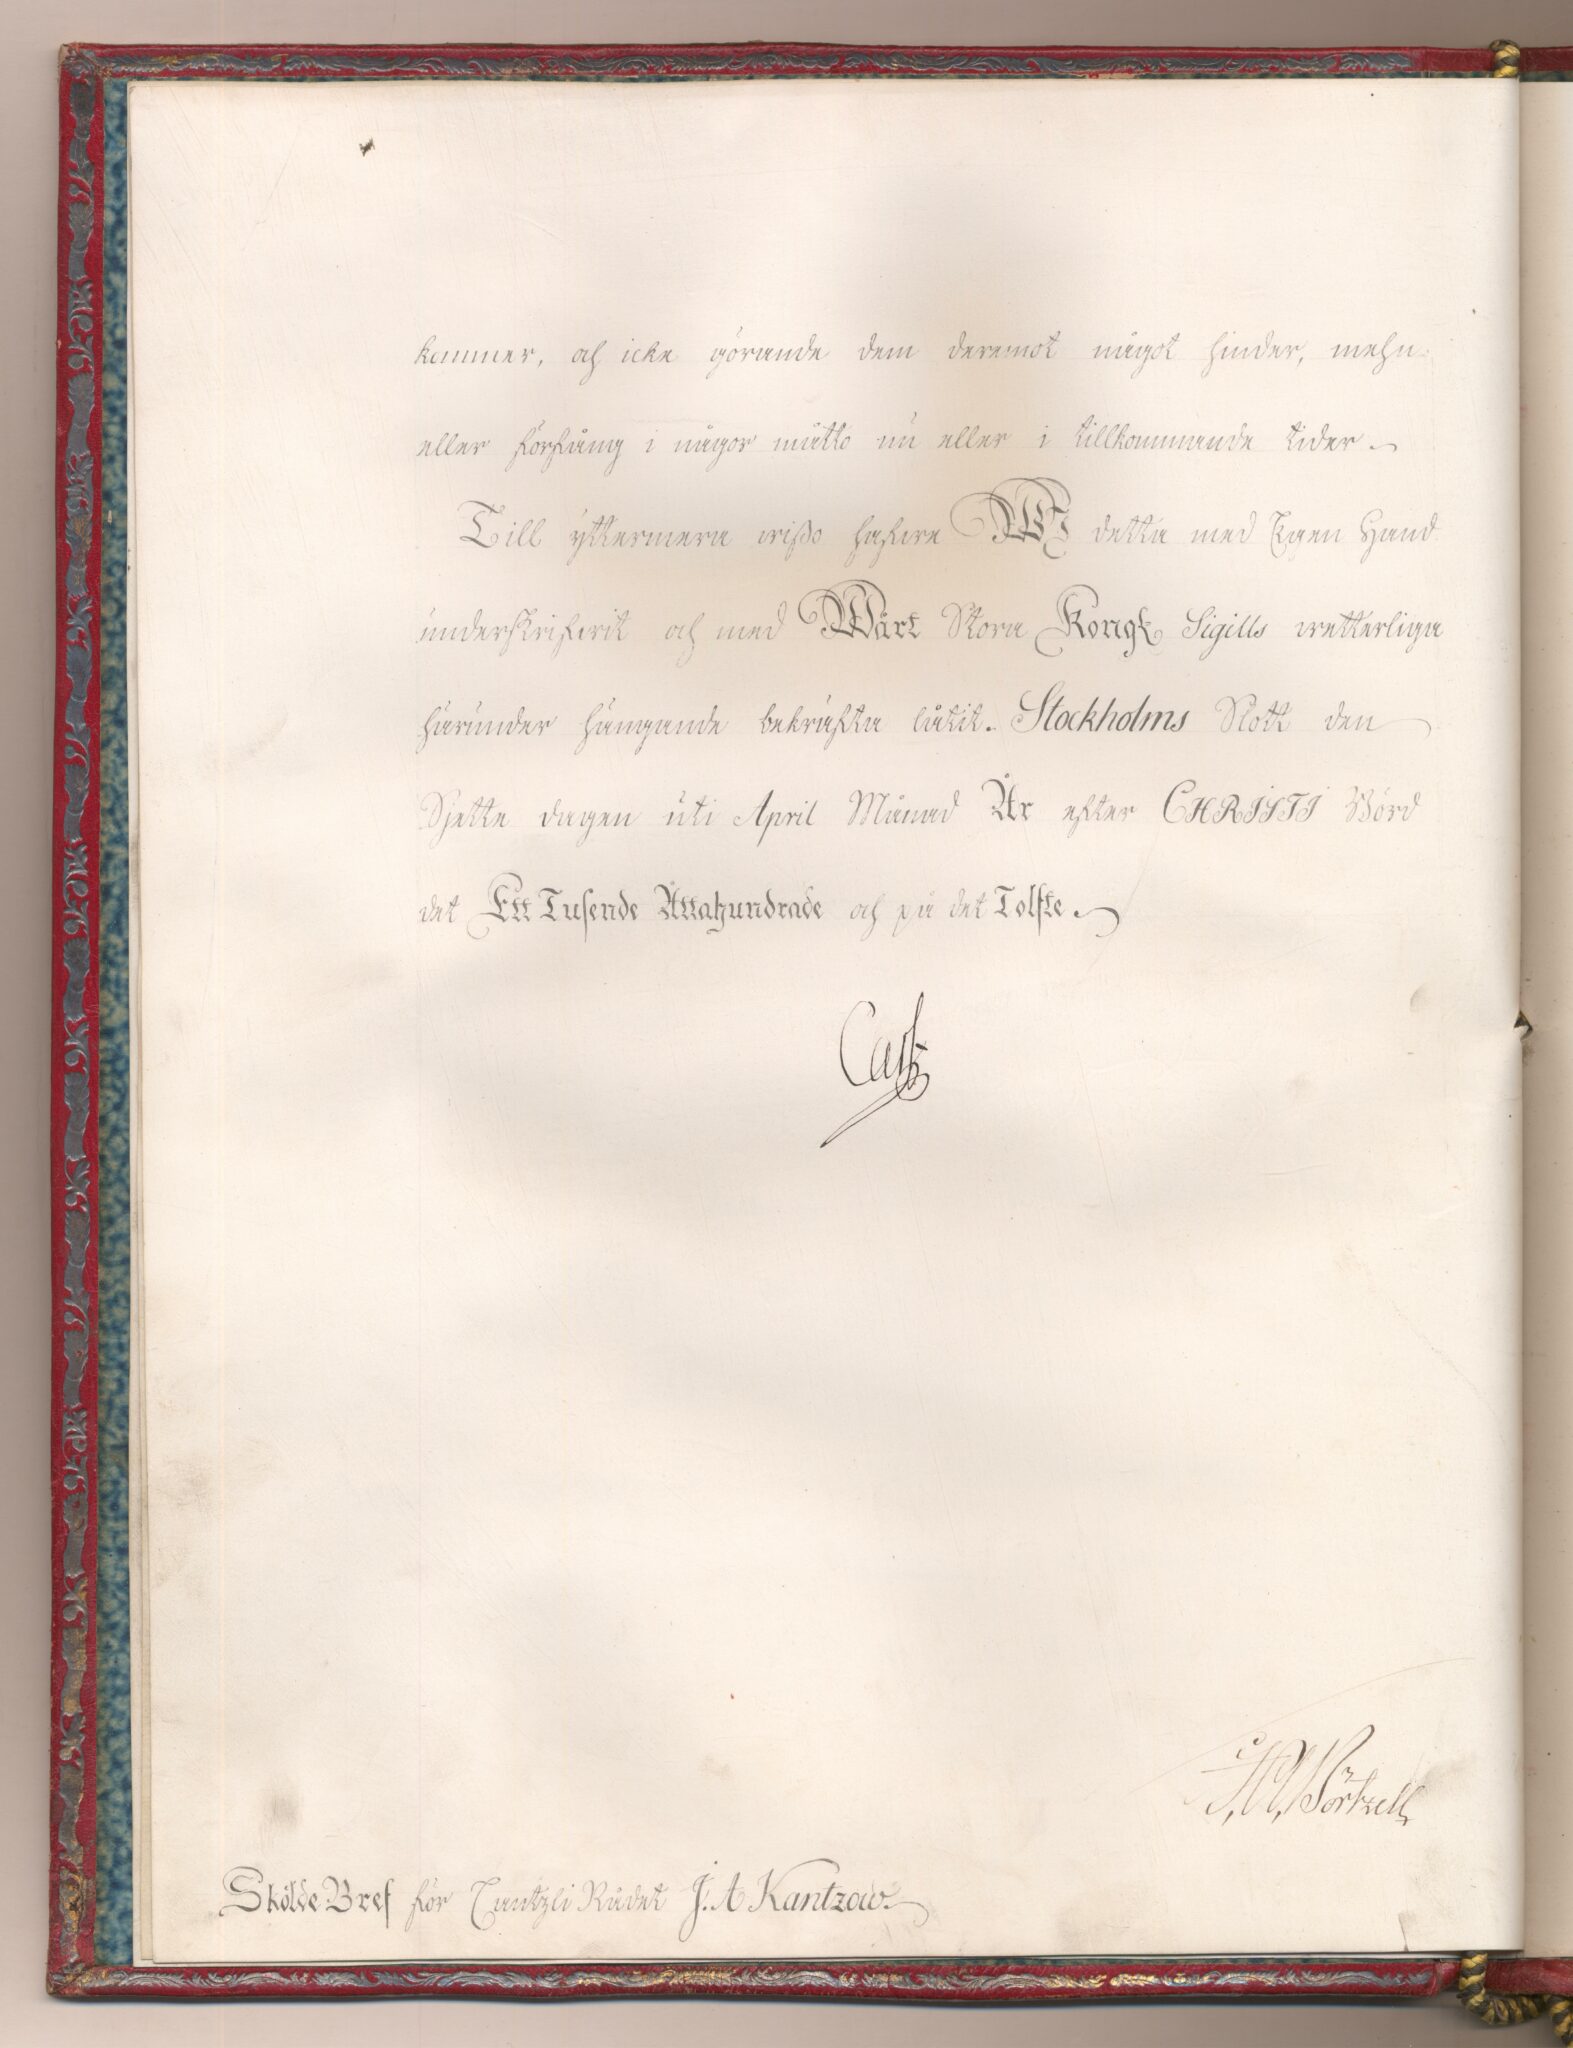 kommer, och icke görande dem deremot något hinder, mehn
eller förfång i någor måtto nu eller i tillkommande tider.
Till yttermera wißo hafwe WJ detta med Egen Hand
underskrifwit och med Wårt Stora Kongl. Sigills wetterliga
härunder hängande bekräfta låtit. Stockholms Slott den
Sjette dagen uti April Månad År efter CHRISTI Börd
det Ett Tusende Åttahundrade och på det Tolfte.
Carl
Skölde Bref för Cantzli Rådet J. A Kantzow.